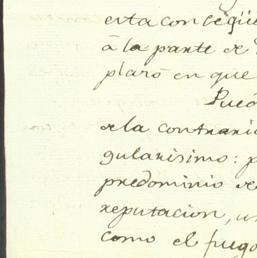 esta consegüe
á la parte de
plaró en que
Pueó
de la contrari
gularisimo: p
predominio de
reputacion, u
como el fuego